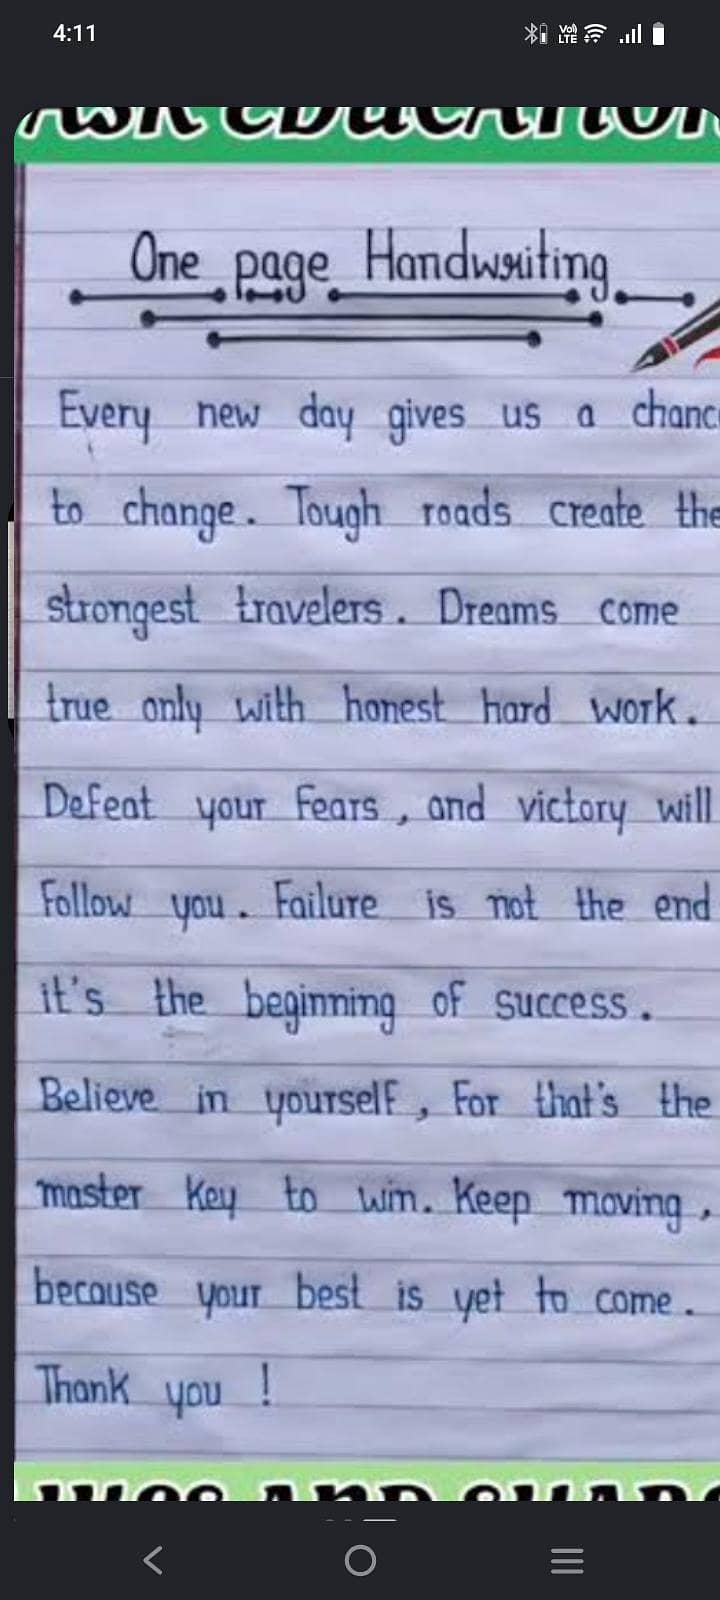 4:11
Vo) LTE
ASK EDUCATION
One page Handwriting
Every new day gives us a chanc
to change. Tough roads create the
strongest travelers. Dreams come
true only with honest hard work.
Defeat your fears, and victory will
follow you. Failure is not the end
it's the beginning of success.
Believe in yourself, for that's the
master key to win. Keep moving,
because your best is yet to come.
Thank you !